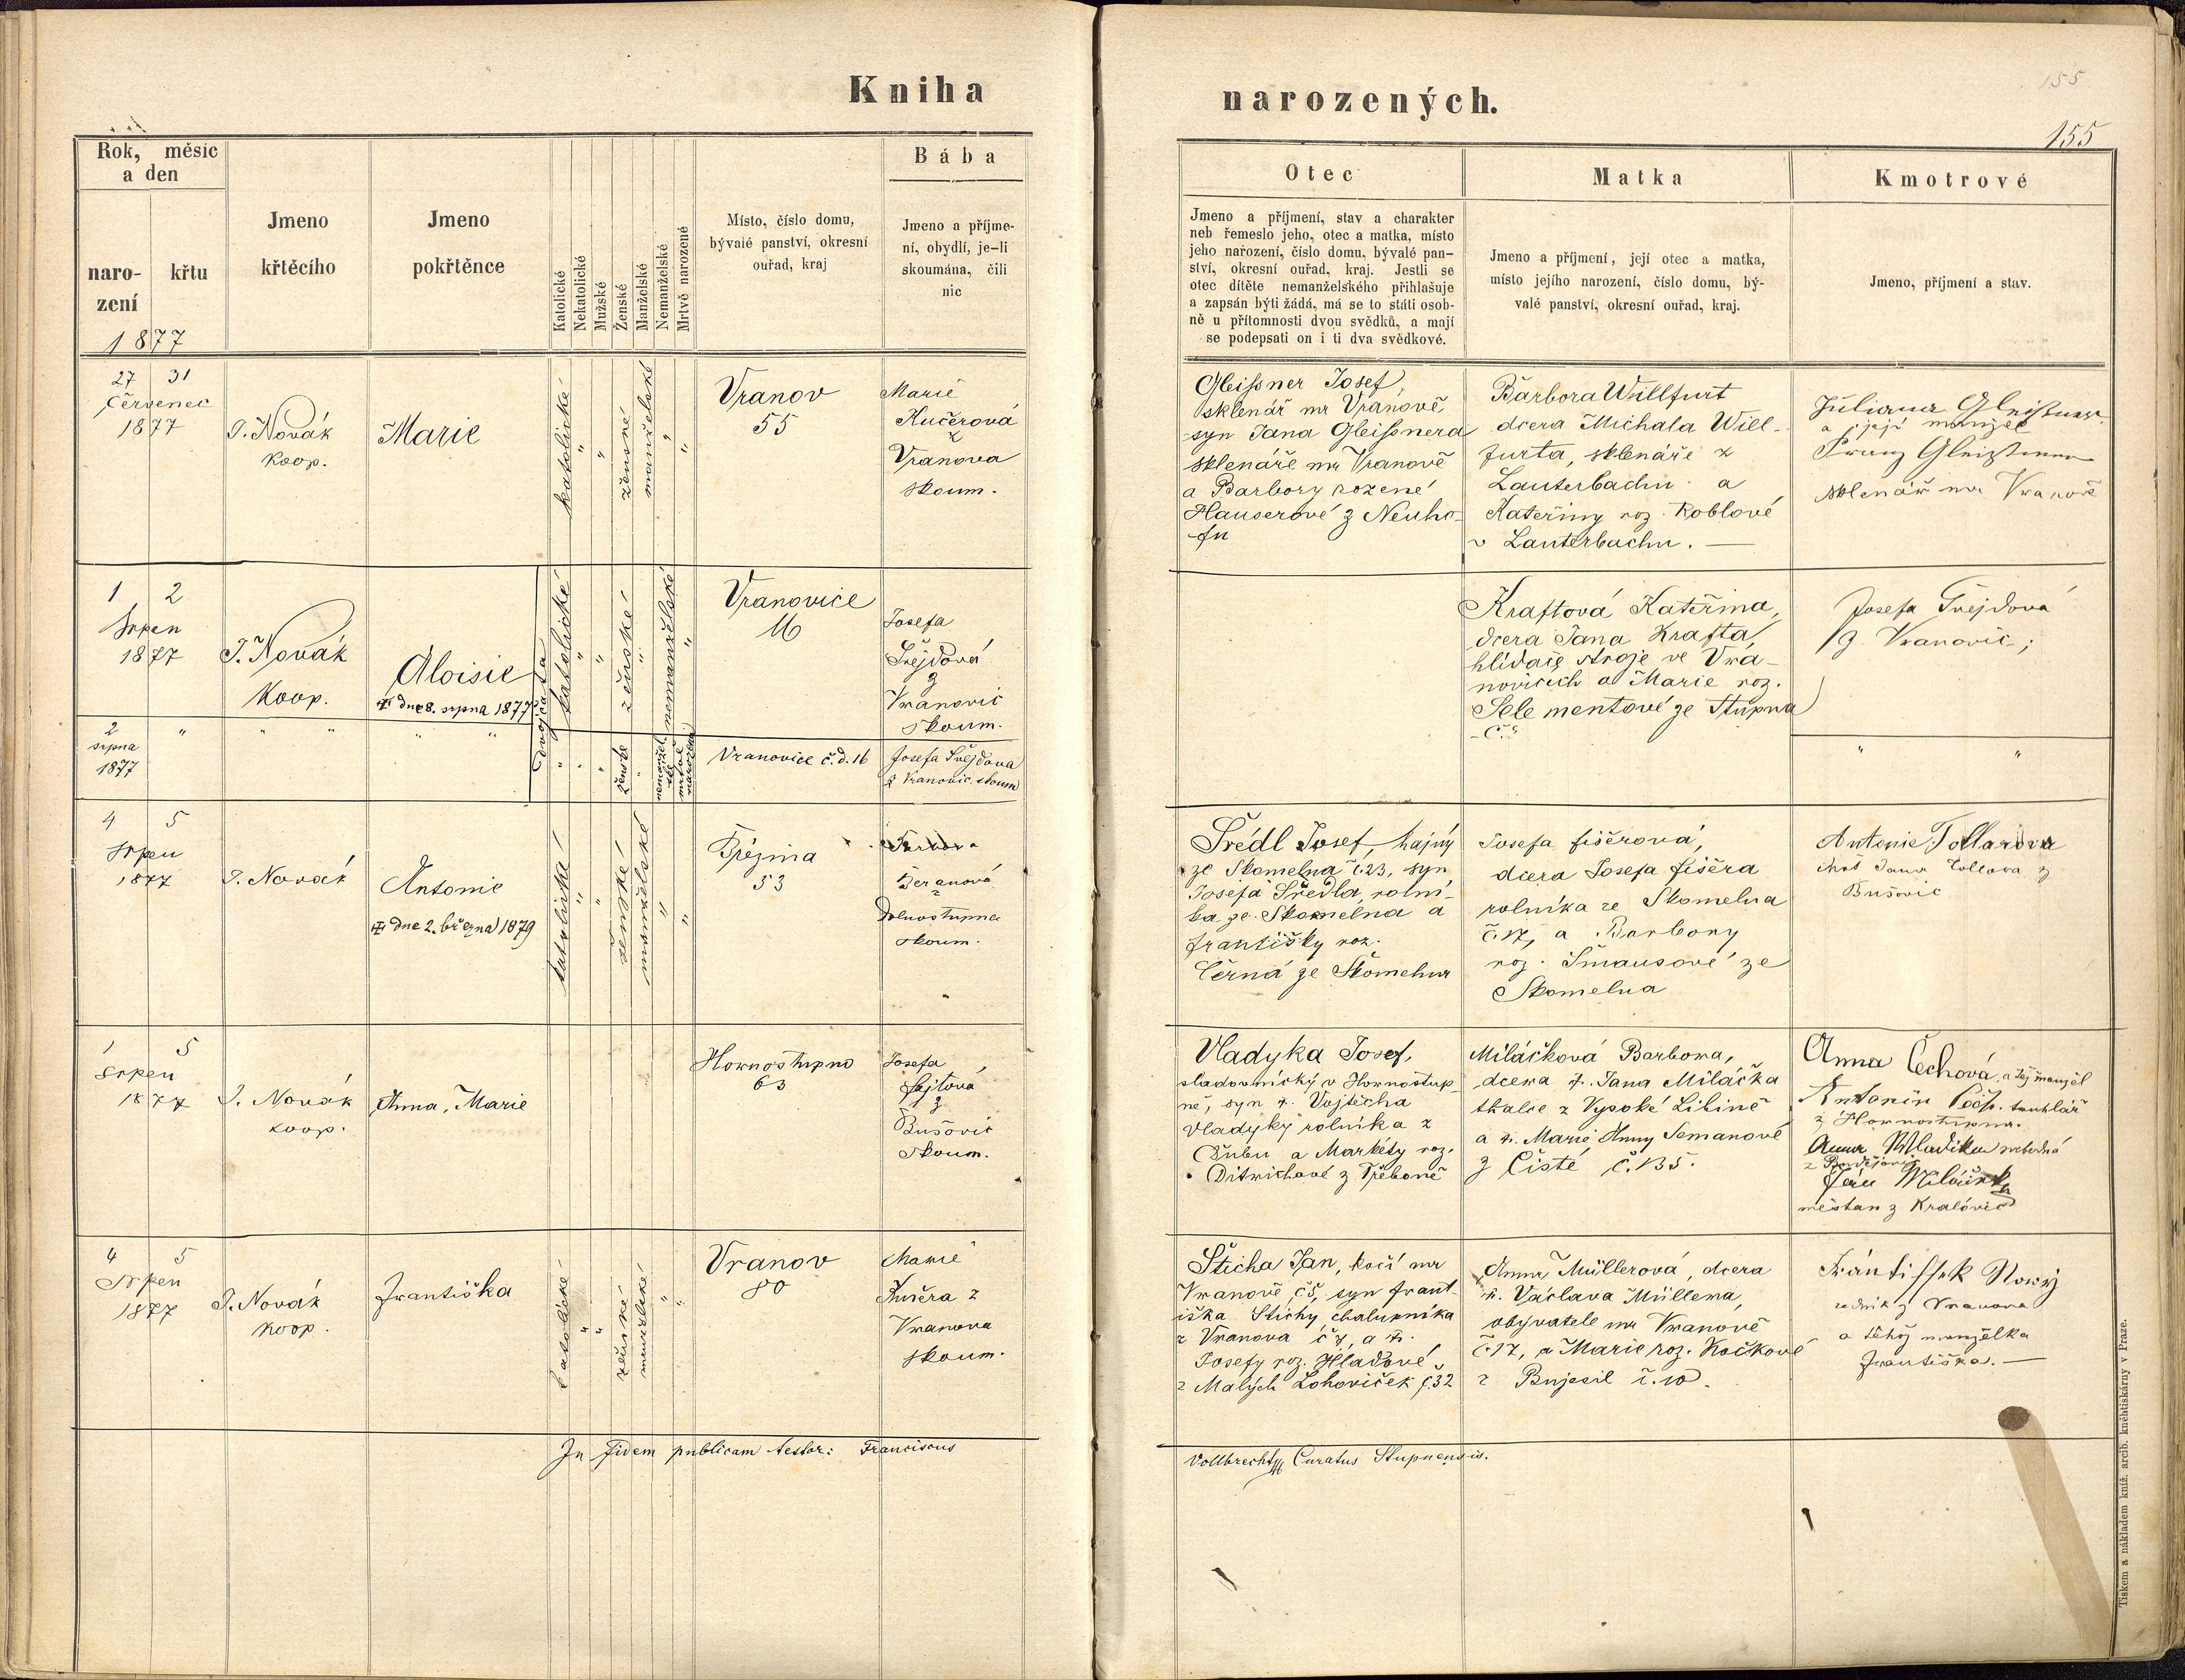 Kniha
narozených.
155
155
Rok, měsíc
a den
naro-
zení
křtu
1877
Jmeno
křtěcího
Jmeno
pokřtěnce
Katolické
Nekatolické
Mužské
Ženské
Manželské
Nemanželské
Mrtvě narozené
Místo, číslo domu,
bývalé panství, okresní
ouřad, kraj
Bába
Jmeno a příjme-
ní, obydlí, je-li
skoumána, čili
nic
Otec
Jmeno a příjmení, stav a charakter
neb řemeslo jeho, otec a matka, místo
jeho nařození, číslo domu, bývalé pan-
ství, okresní ouřad, kraj. Jestli se
otec dítěte nemanželského přihlašuje
a zapsán býti žádá, má se to státi osob-
ně u přítomnosti dvou svědků, a mají
se podepsati on i ti dva svědkové.
Matka
Jmeno a příjmení, její otec a matka,
místo jejího narození, číslo domu, bý-
valé panství, okresní ouřad, kraj.
Kmotrové
Jmeno, příjmení a stav.
27 31
Červenec
1877
J. Novák
koop.
Marie
katolické
"
"
ženské
manželské
"
"
Vranov
55
Marie
Kučerová
z
Vranova
skoum.
Gleißner Josef,
sklenář na Vranově
syn Jana Gleißnera
sklenáře na Vranově
a Barbory rozené
Hauserové z Neuho-
fu
Barbora Willfurt
dcera Michala Will-
furta, sklenáře z
Lauterbachu a
Kateřiny roz. Koblové
v Lauterbachu. —
Juliana Gleißner
a její manžel
Franz Gleißner
sklenář na Vranově
1 2
Srpen
1877
J. Novák
Koop.
Aloisie
† dne 8. srpna 1877
dvojčata
katolické
"
"
ženské
"
nemanželské
"
Vranovice
16
Josefa
Švejdová
z
Vranovic
skoum.
Kraftová Kateřina,
dcera Jana Krafta,
hlídače stroje ve Vra-
novicích a Marie roz.
Selementové ze Stupna
Josefa Švejdová
z Vranovic;
2 "
srpna
1877
" "
" "
" " "
ženské
"
nemanžel-
ské
mrtvě
narozená
Vranovice č.d. 16
Josefa Švejdova
z Vranovic skoum
" "
4 5
Srpen
1877
J. Novák
Antonie
† dne 2. března 1879
katolické
"
"
ženské
manželské
"
"
Březina
53
Beranová
z
Dolnostupna
skoum.
Šrédl Josef, hajný
ze Skomelna č. 23, syn
Josefa Šředla, rolní-
ka ze Skomelna a
Františky roz.
Černá ze Skomelna
Josefa Fišerová,
dcera Josefa Fišera
rolníka ze Skomelna
č. 17, a Barbory
roz. Šmausové ze
Skomelna
Antonie Tollarova
choť Jana Tollara z
Bušovic
1 5
Srpen
1877
J. Novák
koop.
Anna, Marie
Hornostupno
63
Josefa
Fajtová
z
Bušovic
skoum.
Vladyka Josef,
sladovnický v Hornostup-
ně, syn †. Vojtěcha
Vladyky rolníka z
Dubu a Markéty roz.
Ditrichové z Třeboně
Miláčková Barbora,
dcera †. Jana Miláčka
tkalce z Vysoké Libině
a †. Marie Anny Semanové
z Čisté č. 135.
Anna Čechová, a Její manžel
Antonín Čech. truhlář
z Hornostupna.
Anna Wladika svobodná
Jan Miláček
měšťan z Kralovic
4 5
Srpen
1877
J. Novák
koop.
Františka
katolické
"
"
ženské
manželské
"
"
Vranov
80
Marie
Kučera z
Vranova
skoum.
Šticha Jan, kočí na
Vranově č5, syn Frant-
iška Štichy, chalupníka
z Vranova č 7, a †.
Josefy roz. Hladové
z Malých Lohoviček č. 32
Anna Müllerová, dcera
†. Václava Müllera,
obyvatele na Vranově
č. 17, a Marie roz. Kočkové
z Bujesil č. 10.
Frántissek Nowý
rolník z Vranova
a téhož manželka
Františka. —
In fidem publicam testor: Franciscus
Vollbrecht Curatus Stupnensis.
Tiskem a nákladem kníž. arcib. knihtiskárny v Praze.